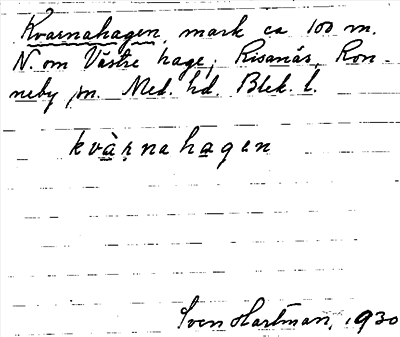 Kvarnahagen, mark ca 100 m.
N. om Västre hage, Risanäs, Ron-
neby sn. Med. hd. Blek. l.
kvàṛnahagen
Sven Hartman, 1930